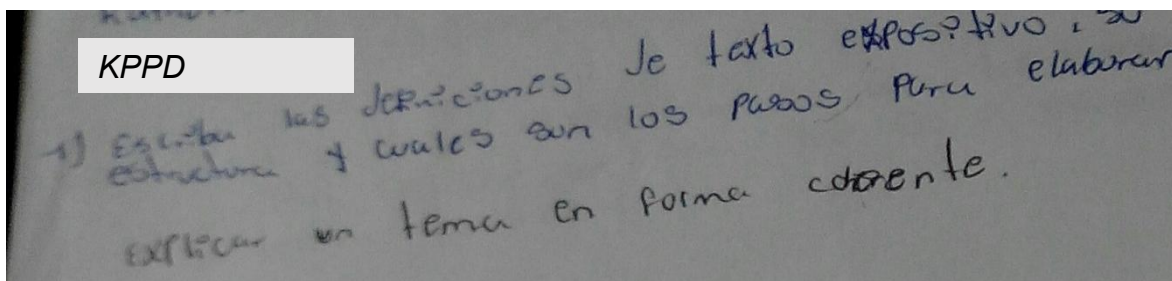 KPPD
1) Escriba las definiciones de texto expositivo, su
estructura y cuales son los pasos para elaborar
explicar un tema en forma coherente.